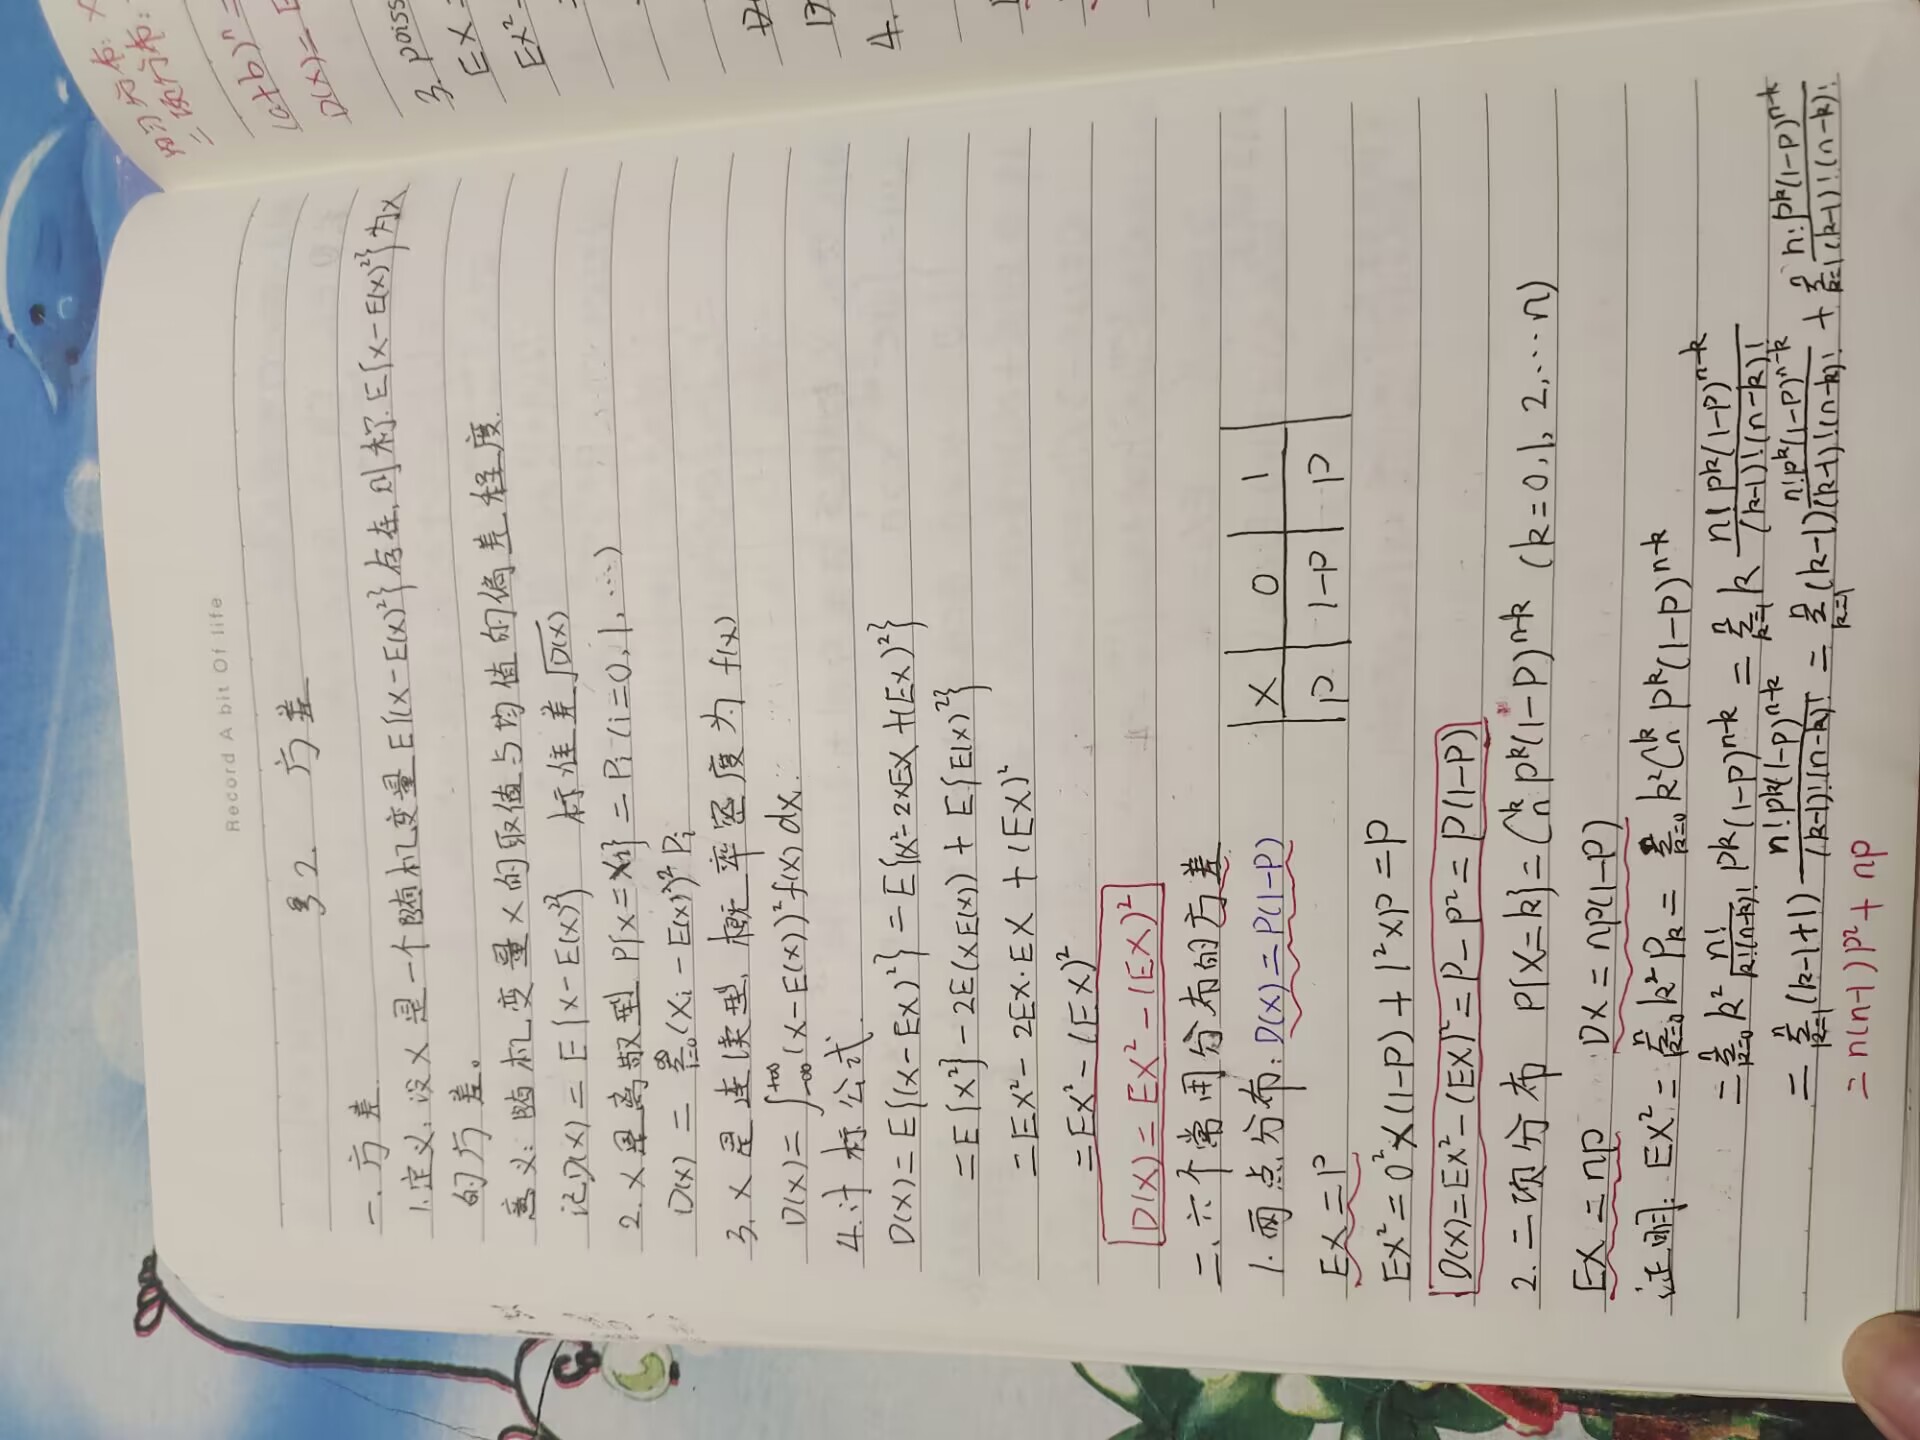 Record A bit Of life
§2. 方差
一. 方差
1. 定义: 设X是一个随机变量E{(x-E(x)²}存在,则称E{x-E(x)²}为X
的方差。
意义: 随机变量X的取值与均值的偏差程度.
记D(x) = E{x-E(x)²} 标准差√D(x)
2. X是离散型 P{x=xi} = Pi (i=0,1,…)
D(x) = Σ_{i=0}^{∞}(xi-E(x))² Pi
3. X是连续型, 概率密度为f(x)
D(x) = ∫_{-∞}^{+∞}(x-E(x))² f(x)dx.
4. 计标公式.
D(x) = E{(x-Ex)²} = E{x²-2xEX+(EX)²}
= E{x²} - 2E(xE(x)) + E{E(x)²}
= EX² - 2EX·EX + (EX)²
= EX² - (EX)²
D(x) = EX² - (EX)²
二. 六个常用分布的方差
1. 两点分布: D(x) = P(1-P)
X 0 1
P 1-P P
EX = P
EX² = 0²×(1-P) + 1²×P = P
D(x) = EX² - (EX)² = P - P² = P(1-P)
2. 二项分布 P{X=k} = C_n^k P^k(1-P)^{n-k} (k=0,1,2,…n)
EX = np DX = np(1-P)
证明: EX² = Σ_{k=0}^{n} k² P_k = Σ_{k=0}^{n} k² C_n^k P^k(1-P)^{n-k}
= Σ_{k=0}^{n} k² n!/(k!(n-k)!) P^k(1-P)^{n-k} = Σ_{k=1}^{n} k n!P^k(1-P)^{n-k}/((k-1)!(n-k)!)
= Σ_{k=1}^{n}(k-1+1) n!P^k(1-P)^{n-k}/((k-1)!(n-k)!) = Σ_{k=1}^{n}(k-1) n!P^k(1-P)^{n-k}/((k-1)!(n-k)!) + Σ_{k=1}^{n} n!P^k(1-P)^{n-k}/((k-1)!(n-k)!)
= n(n-1)P² + np
二项分布:
(a+b)ⁿ =
D(x) =
3. poiss
EX =
EX² =
4.